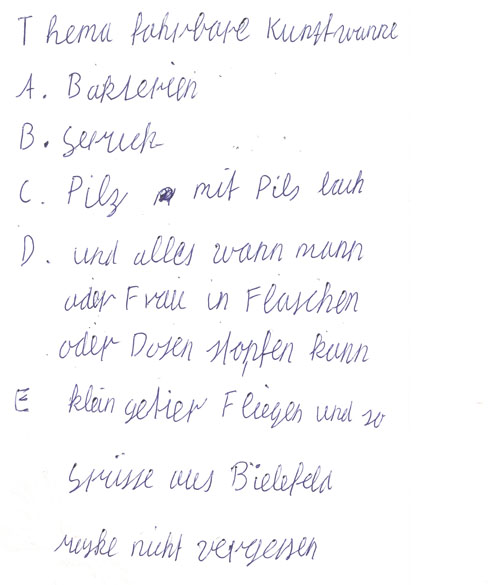 Thema fahrbare Kunstwanne
A. Bakterien
B. Geruch
C. Pilz mit Pils lach
D. und alles wann mann
oder Frau in Flaschen
oder Dosen stopfen kann
E klein getier Fliegen und so
Grüsse aus Bielefeld
nicht vergessen